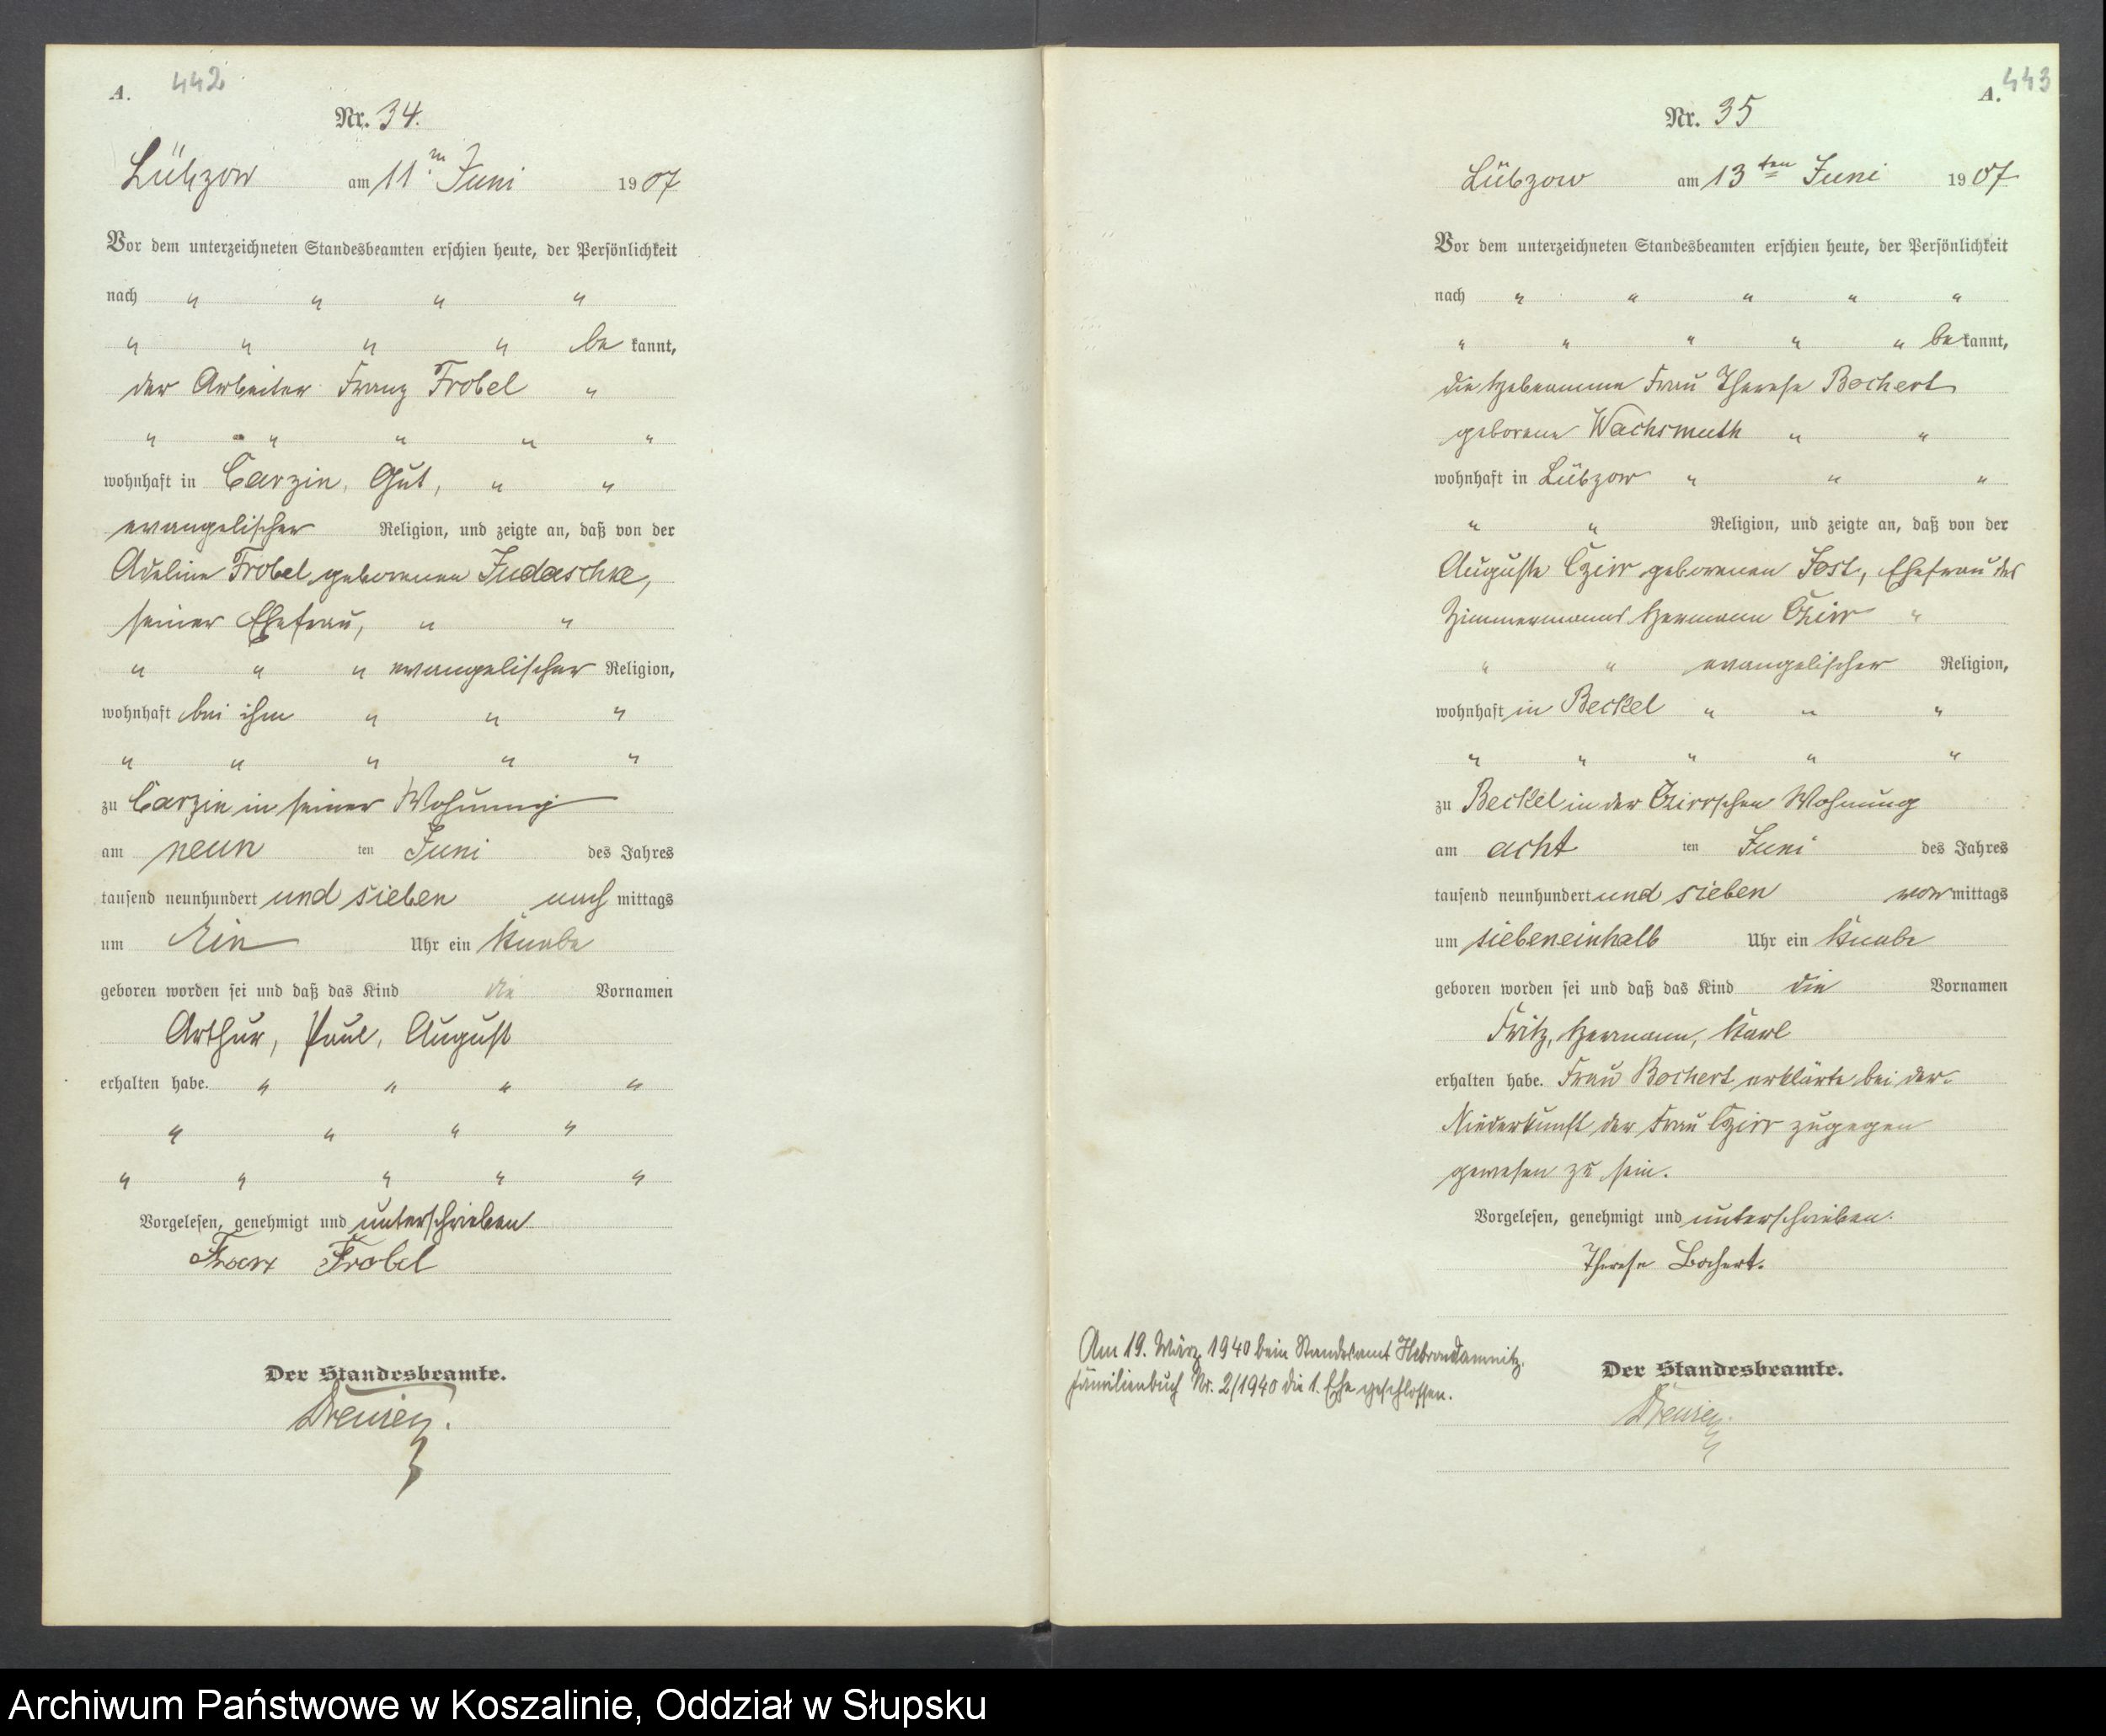 A. 442
Nr. 34.
Lübzow am 11. Juni 1907
Vor dem unterzeichneten Standesbeamten erschien heute, der Persönlichkeit
nach " " " "
" " " " be kannt,
der Arbeiter Franz Frobel "
" " " " "
wohnhaft in Carzin, Gut, " "
evangelischer Religion, und zeigte an, daß von der
Adeline Frobel geborenen Judaschke,
seiner Ehefrau, " "
" " " evangelischer Religion,
wohnhaft bei ihm " " "
" " " " "
zu Carzin in seiner Wohnung
am neun ten Juni des Jahres
tausend neunhundert und sieben nach mittags
um Ein Uhr ein Knabe
geboren worden sei und daß das Kind die Vornamen
Arthur, Paul, August
erhalten habe. " " " "
" " " "
" " " " "
Vorgelesen, genehmigt und unterschrieben
Franz Frobel
Der Standesbeamte.
A. 443
Nr. 35
Lübzow am 13ten Juni 1907
Vor dem unterzeichneten Standesbeamten erschien heute, der Persönlichkeit
nach " " " " "
" " " " " be kannt,
die Hebeamme Frau Therese Bochert
geborene Wachsmuth " "
wohnhaft in Lübzow " " "
" " Religion, und zeigte an, daß von der
Auguste Czirr geborenen Jost, Ehefrau des
Zimmermanns Hermann Czirr "
" " evangelischer Religion,
wohnhaft in Beckel " " "
" " " " "
zu Beckel in der Czirrschen Wohnung
am acht ten Juni des Jahres
tausend neunhundert und sieben vor mittags
um siebeneinhalb Uhr ein Knabe
geboren worden sei und daß das Kind die Vornamen
Fritz, Hermann, Karl
erhalten habe. Frau Bochert erklärte bei der
Niederkunft der Frau Czirr zugegen
gewesen zu sein.
Vorgelesen, genehmigt und unterschrieben.
Therese Bochert.
Am 19. März 1940 beim Standesamt Hebrondamnitz,
Familienbuch Nr. 2/1940 die 1. Ehe geschlossen.
Der Standesbeamte.
Archiwum Państwowe w Koszalinie, Oddział w Słupsku